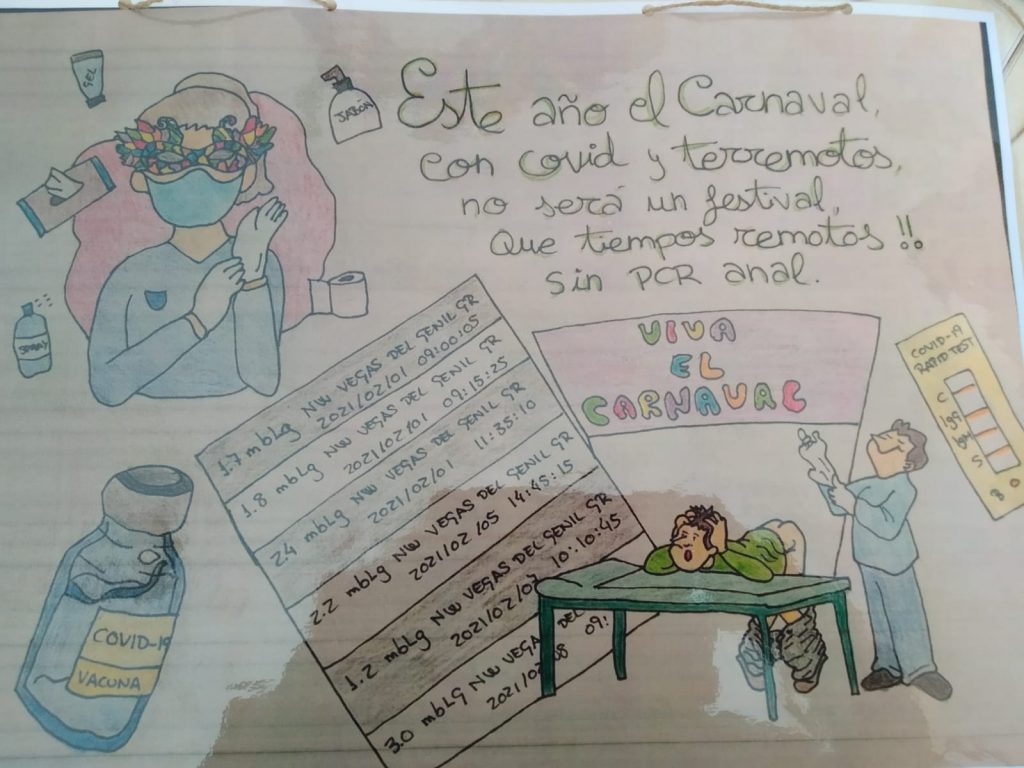 GEL
JABÓN
Este año el Carnaval,
con covid y terremotos,
no será un festival,
Que tiempos remotos!!
Sin PCR anal.
SPRAY
1.7 mbLg NW VEGAS DEL GENIL GR
2021/02/01 09:00:05
1.8 mbLg NW VEGAS DEL GENIL GR
2021/02/01 09:15:25
2.4 mbLg NW VEGAS DEL GENIL GR
2021/02/01 11:35:10
2.2 mbLg NW VEGAS DEL GENIL GR
2021/02/05 14:45:15
1.2 mbLg NW VEGAS DEL GENIL GR
2021/02/07 10:10:45
3.0 mbLg NW VEGA DEL
09:
VIVA
EL
CARNAVAL
COVID-19
RAPID TEST
C
IgG
IgM
S
B
COVID-19
VACUNA